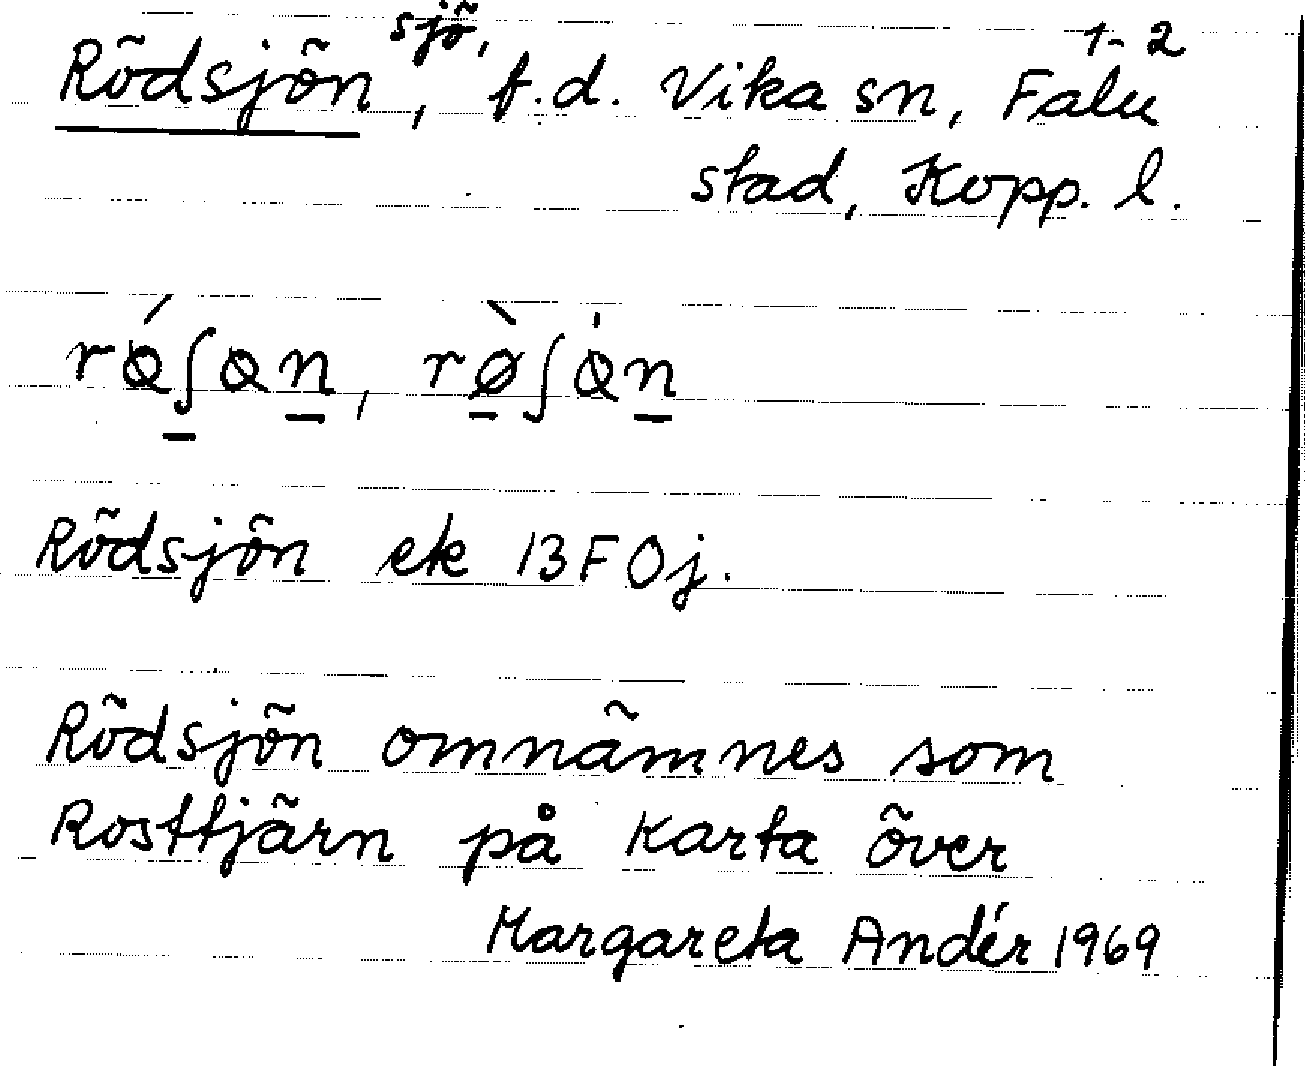 sjö, 1-2
Rödsjön, f.d. Vika sn, Falu
stad, Kopp. l.
Rödsjön ek 13F 0j.
Rödsjön omnämnes som
Rosttjärn på karta över
Margareta Andér 1969